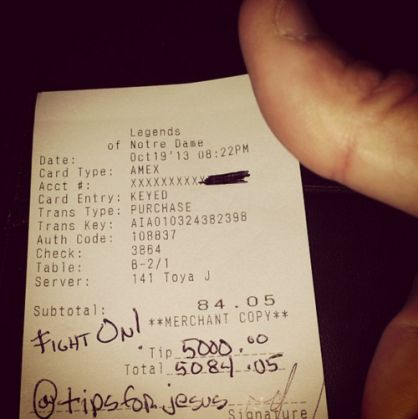 Legends
of Notre Dame
Date: Oct19'13 08:22PM
Card Type: AMEX
Acct #: XXXXXXXXXX
Card Entry: KEYED
Trans Type: PURCHASE
Trans Key: AIA010324382398
Auth Code: 108837
Check: 3864
Table: B-2/1
Server: 141 Toya J
Subtotal: 84.05
FIGHT ON! **MERCHANT COPY**
Tip 5000.00
Total 5084.05
@tipsforjesus
Signature